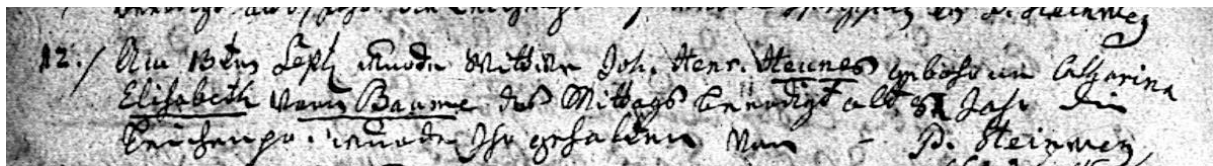 beerdigt alt Jahr die Leichpr. P. Steinweg
12./ Am 13ten Sept. wurde Wittwe Joh. Henr. Heunes gebohrne Catharina
Elisabeth vom Baume des Mittags beerdigt alt 81 Jahr die
Leichenpr. wurde Ihr gehalten von - P. Steinweg